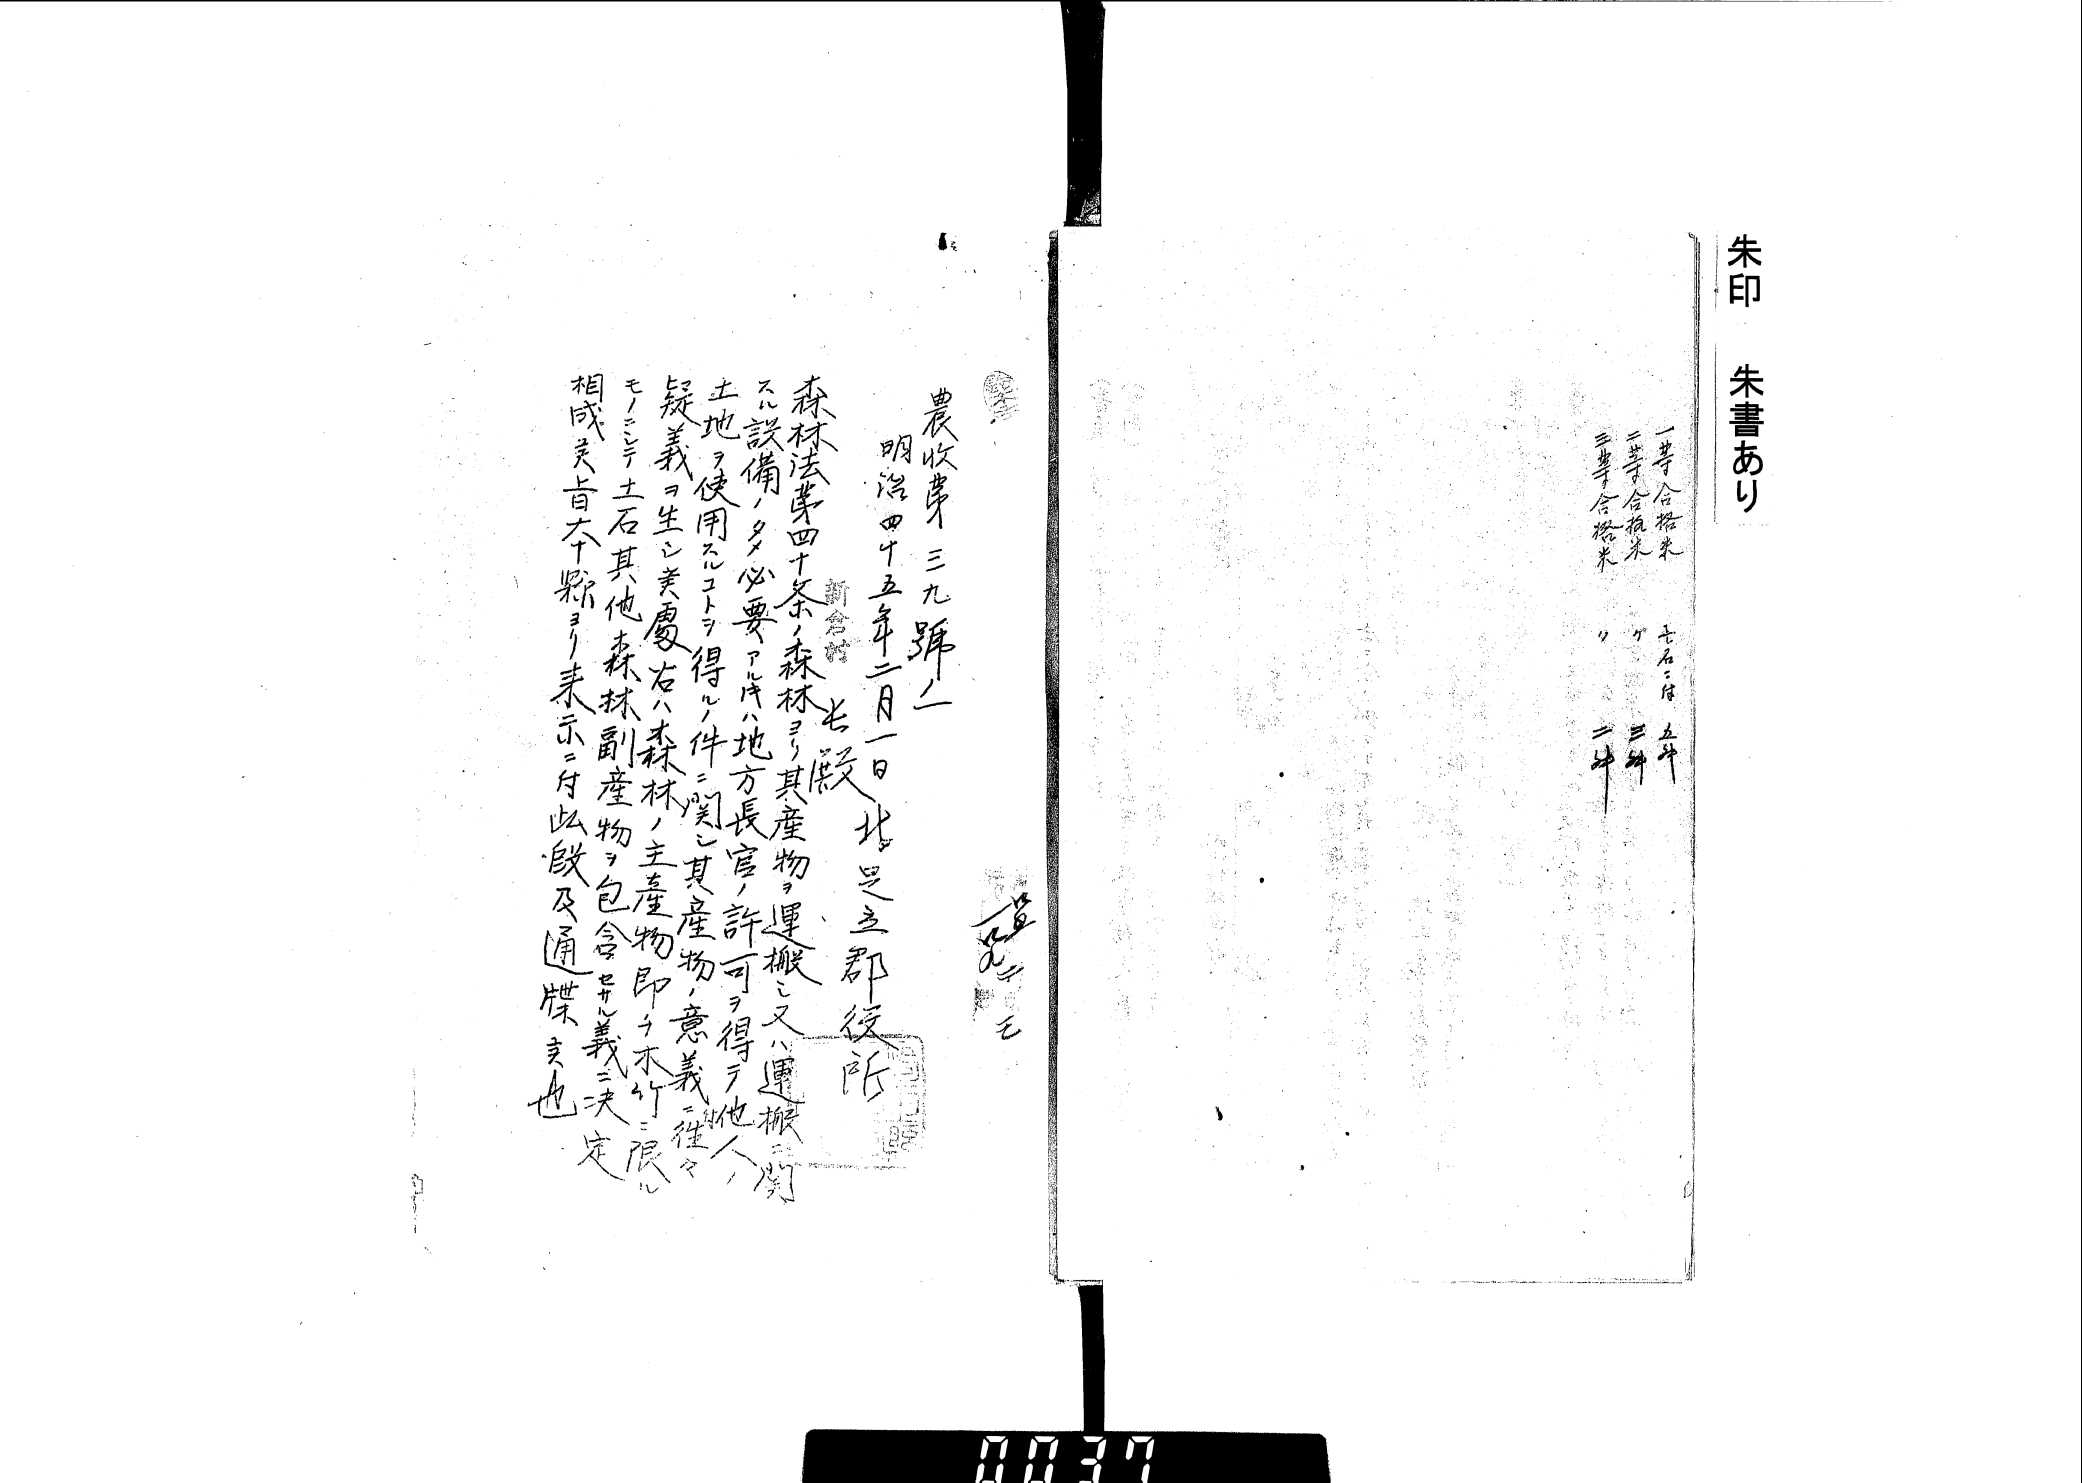 朱印　朱書あり
一等合格米　壱石ニ付　五舛
二等合格米　〃　三舛
三等合格米　〃　二舛
農收第三九號ノ一
明治四十五年二月一日北足立郡役所
新倉村長殿
森林法第四十条ノ森林ヨリ其産物ヲ運搬シ又ハ運搬ニ関
スル設備ノタメ必要アルトキハ地方長官ノ許可ヲ得テ他人ノ
土地ヲ使用スルコトヲ得ルノ件ニ関シ其産物ノ意義ニ付往々
疑義ヲ生シ候處右ハ森林ノ主産物即チ木竹ニ限ル
モノニシテ土石其他森林副産物ヲ包含セサル義ニ决定
相成候旨本縣ヨリ来示ニ付此段及通牒候也
0037